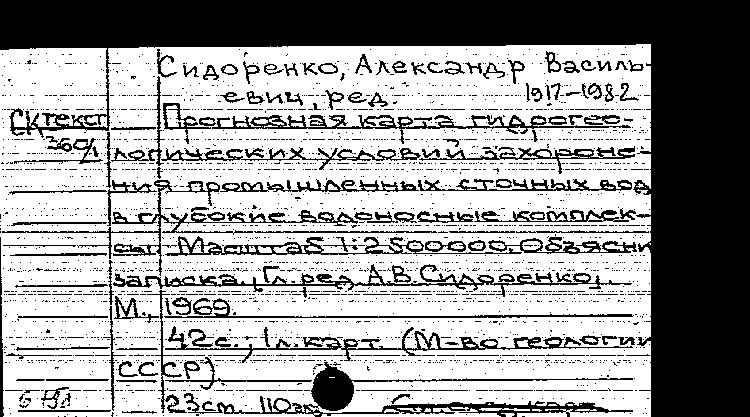 Сидоренко, Александр Василь-
евич, ред. 1917-1982
СК текст Прогнозная карта гидрогео-
360/1 логических условий захороне-
ния промышленных сточных вод
в глубокие водоносные комплек-
сы. Масштаб 1:2500000. Объясн
записка. Гл. ред. А.В. Сидоренко.
М., 1969.
42 с.; 1 л. карт. (М-во геологии
СССР).
23 см. 110 экз. См. след. карт.